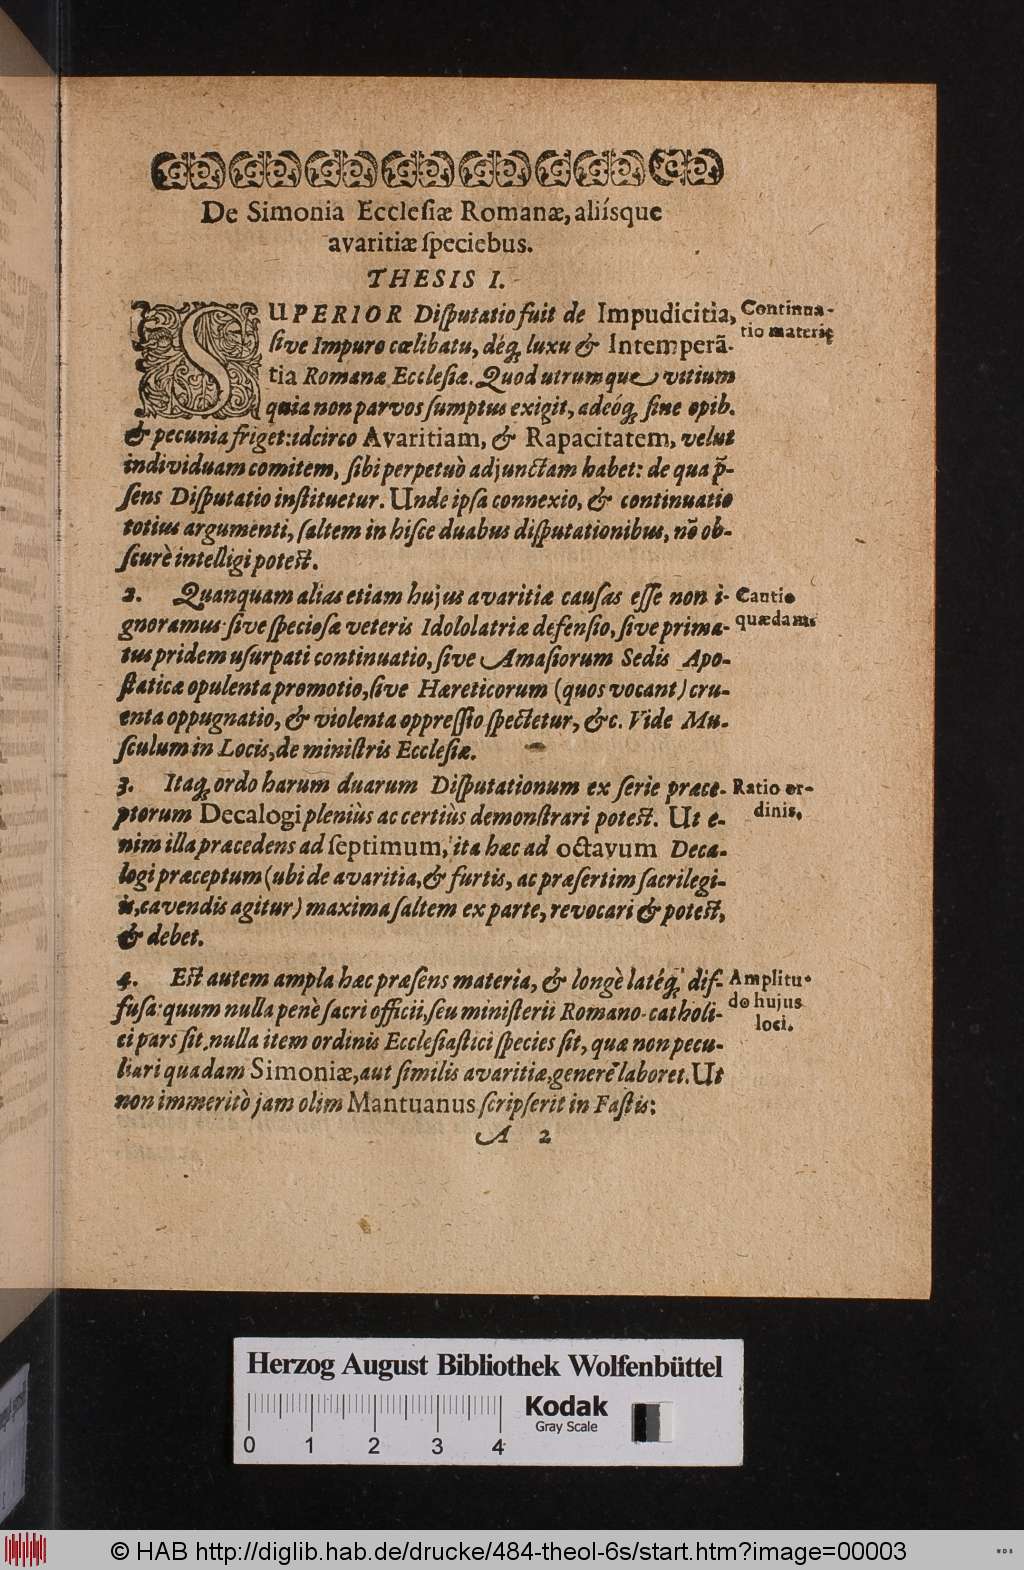 De Simonia Eccleſiæ Romanæ, aliísque
avaritiæ ſpeciebus.
THESIS I.
SUPERIOR Diſputatio fuit de Impudicitia,
ſive Impuro cœlibatu, déq; luxu & Intemperã-
tia Romanæ Eccleſiæ. Quod utrumque vitium
quia non parvos ſumptus exigit, adeóq; ſine opib.
& pecunia friget: idcirco Avaritiam, & Rapacitatem, velut
individuam comitem, ſibi perpetuò adjunctam habet: de qua p̃-
ſens Diſputatio inſtituetur. Unde ipſa connexio, & continuatio
totius argumenti, ſaltem in hiſce duabus diſputationibus, nõ ob-
ſcurè intelligi poteſt.
Continua-
tio materię
2. Quanquam alias etiam hujus avaritiæ cauſas eſſe non i-
gnoramus: ſive ſpecioſa veteris Idololatriæ defenſio, ſive prima-
tus pridem uſurpati continuatio, ſive Amaſiorum Sedis Apo-
ſtaticæ opulenta promotio, ſive Hæreticorum (quos vocant) cru-
enta oppugnatio, & violenta oppreſſio ſpectetur, &c. Vide Mu-
ſculum in Locis, de miniſtris Eccleſiæ.
Cautio
quædam
3. Itaq; ordo harum duarum Diſputationum ex ſerie præce-
ptorum Decalogi pleniùs ac certiùs demonſtrari poteſt. Ut e-
nim illa præcedens ad ſeptimum, ita hæc ad octavum Deca-
logi præceptum (ubi de avaritia, & furtis, ac præſertim ſacrilegi-
is, cavendis agitur) maxima ſaltem ex parte, revocari & poteſt,
& debet.
Ratio or-
dinis.
4. Eſt autem ampla hæc præſens materia, & longè latéq; dif-
fuſa: quum nulla penè ſacri officii, ſeu miniſterii Romano-catholi-
ci pars ſit, nulla item ordinis Eccleſiaſtici ſpecies ſit, quæ non pecu-
liari quadam Simoniæ, aut ſimilis avaritiæ, genere laboret. Ut
non immeritò jam olim Mantuanus ſcripſerit in Faſtis:
Amplitu-
do hujus
loci.
A 2
Herzog August Bibliothek Wolfenbüttel
0 1 2 3 4
Kodak
Gray Scale
© HAB http://diglib.hab.de/drucke/484-theol-6s/start.htm?image=00003